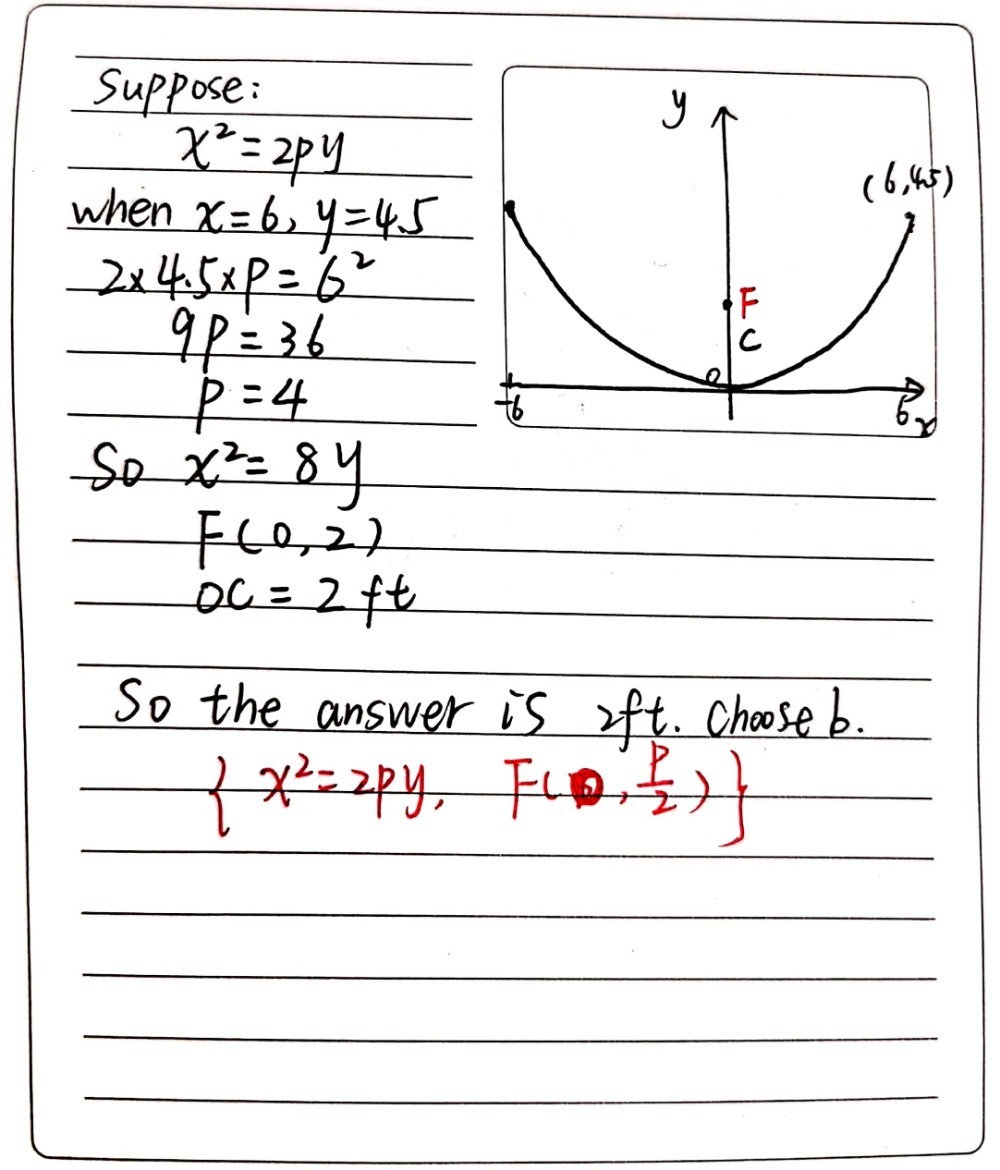 Suppose:
x² = 2py
when x=6, y=4.5
2×4.5×p = 6²
9p = 36
p = 4
So x² = 8y
F(0,2)
OC = 2 ft
y
(6,4.5)
F
C
O
-6
6
x
So the answer is 2ft. Choose b.
{ x² = 2py, F(0, p/2) }